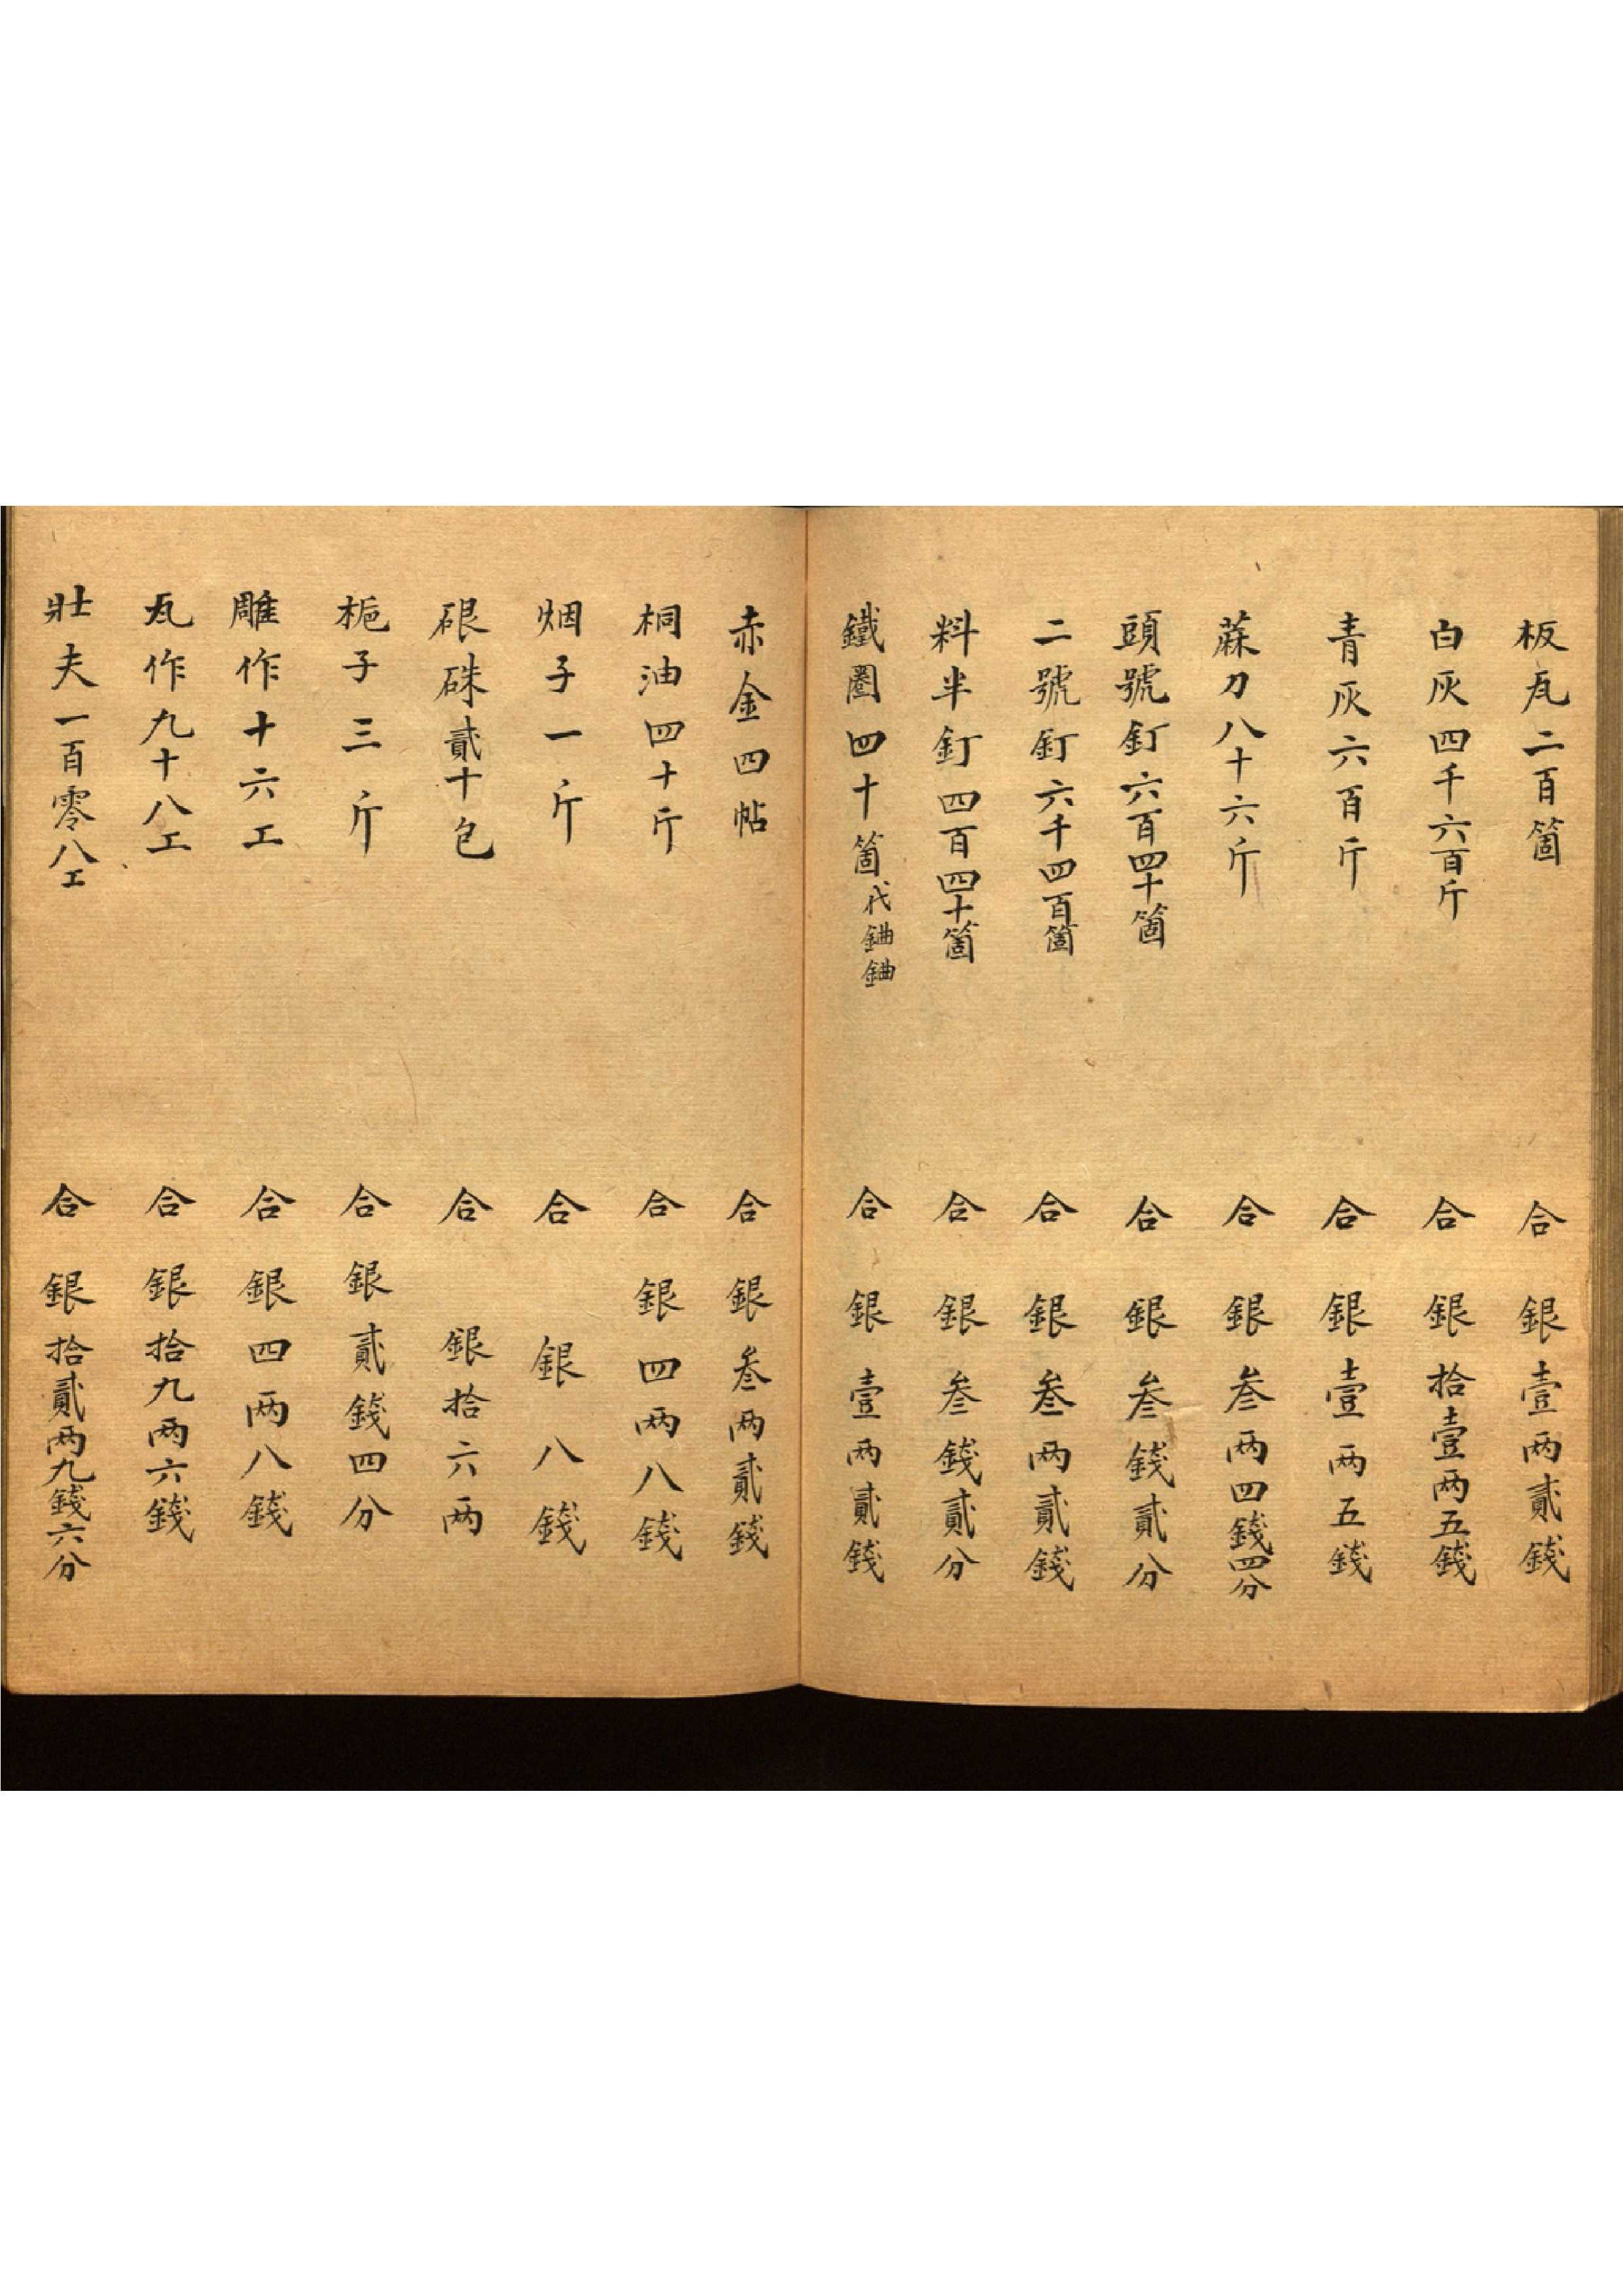 板瓦二百箇 合 銀壹两貳錢
白灰四千六百斤 合 銀拾壹两五錢
青灰六百斤 合 銀壹两五錢
蔴刀八十六斤 合 銀叁两四錢四分
頭號釘六百四十箇 合 銀叁錢貳分
二號釘六千四百箇 合 銀叁两貳錢
料半釘四百四十箇 合 銀叁錢貳分
鐵圈四十箇代鏀鏀 合 銀壹两貳錢
赤金四帖 合 銀叁两貳錢
桐油四十斤 合 銀四两八錢
烟子一斤 合 銀八錢
硍硃貳十包 合 銀拾六两
梔子三斤 合 銀貳錢四分
雕作十六工 合 銀四两八錢
瓦作九十八工 合 銀拾九两六錢
壯夫一百零八工 合 銀拾貳两九錢六分